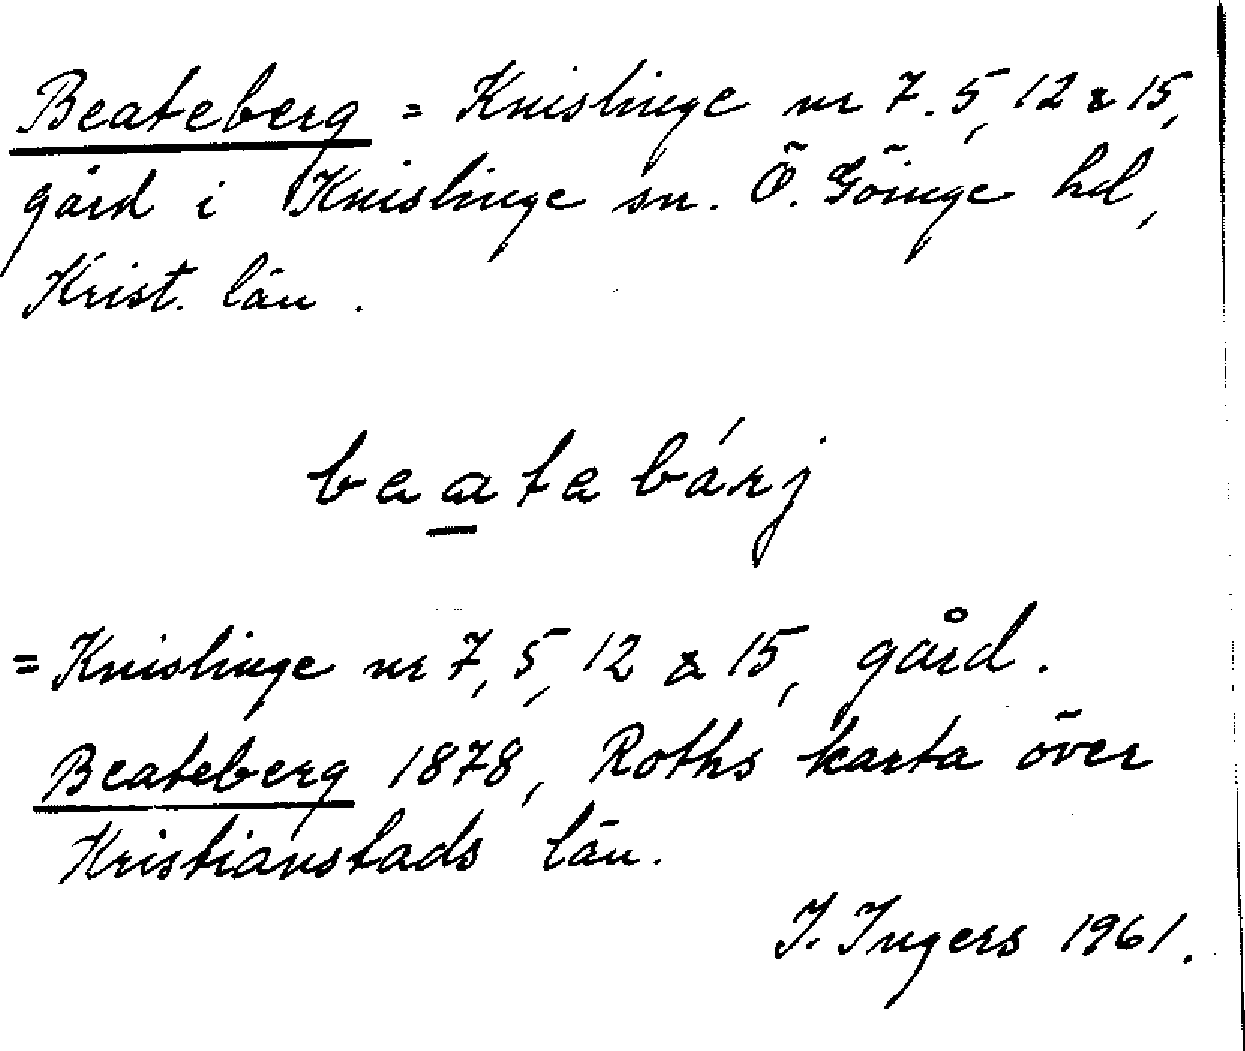 Beateberg = Knislinge nr 7. 5, 12 & 15,
gård i Knislinge sn. Ö. Göinge hd,
Krist. län.
beatabárj
= Knislinge nr 7, 5, 12 & 15, gård.
Beateberg 1878, Roths karta över
Kristianstads län.
I. Ingers 1961.